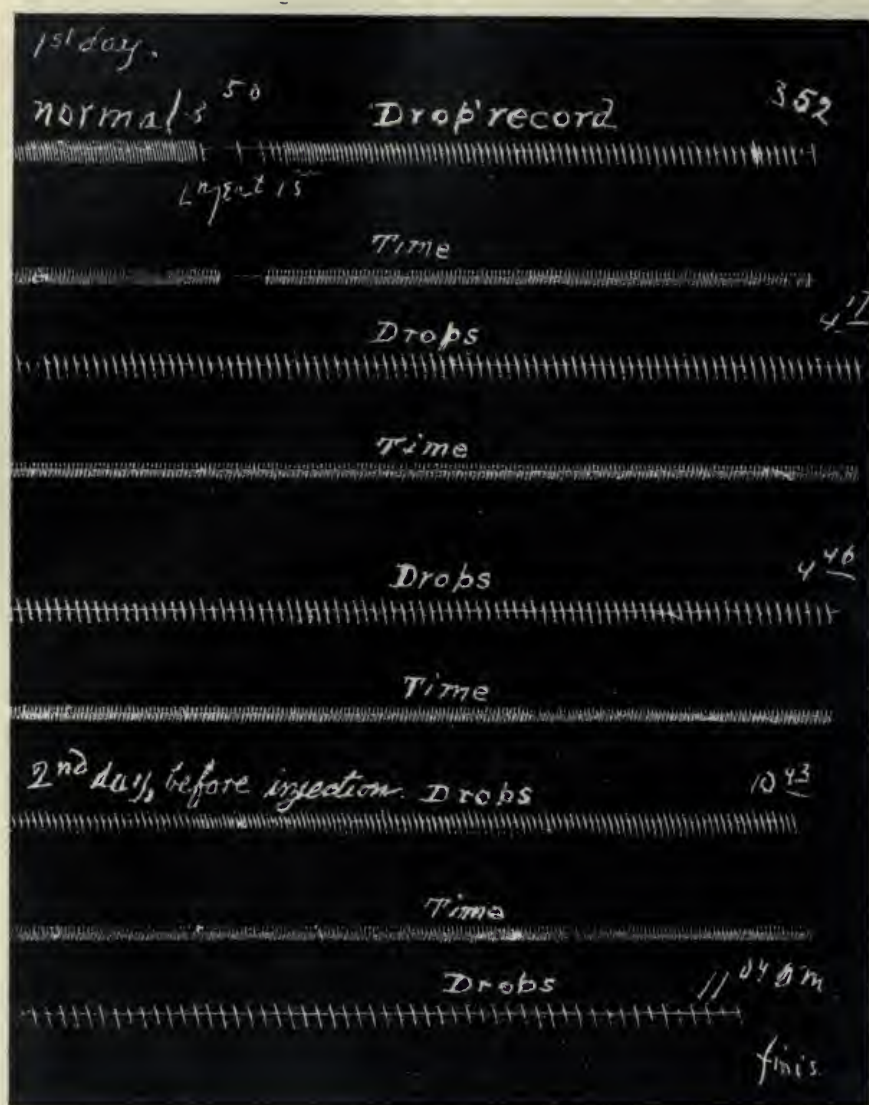 1st day.
normal 3 50 Drop record 3 52
Inject 15
Time
4 17
Drops
Time
Drops 4 46
Time
2nd day, before injection. Drops 10 43
Time
Drops 11 04 a m
finis.